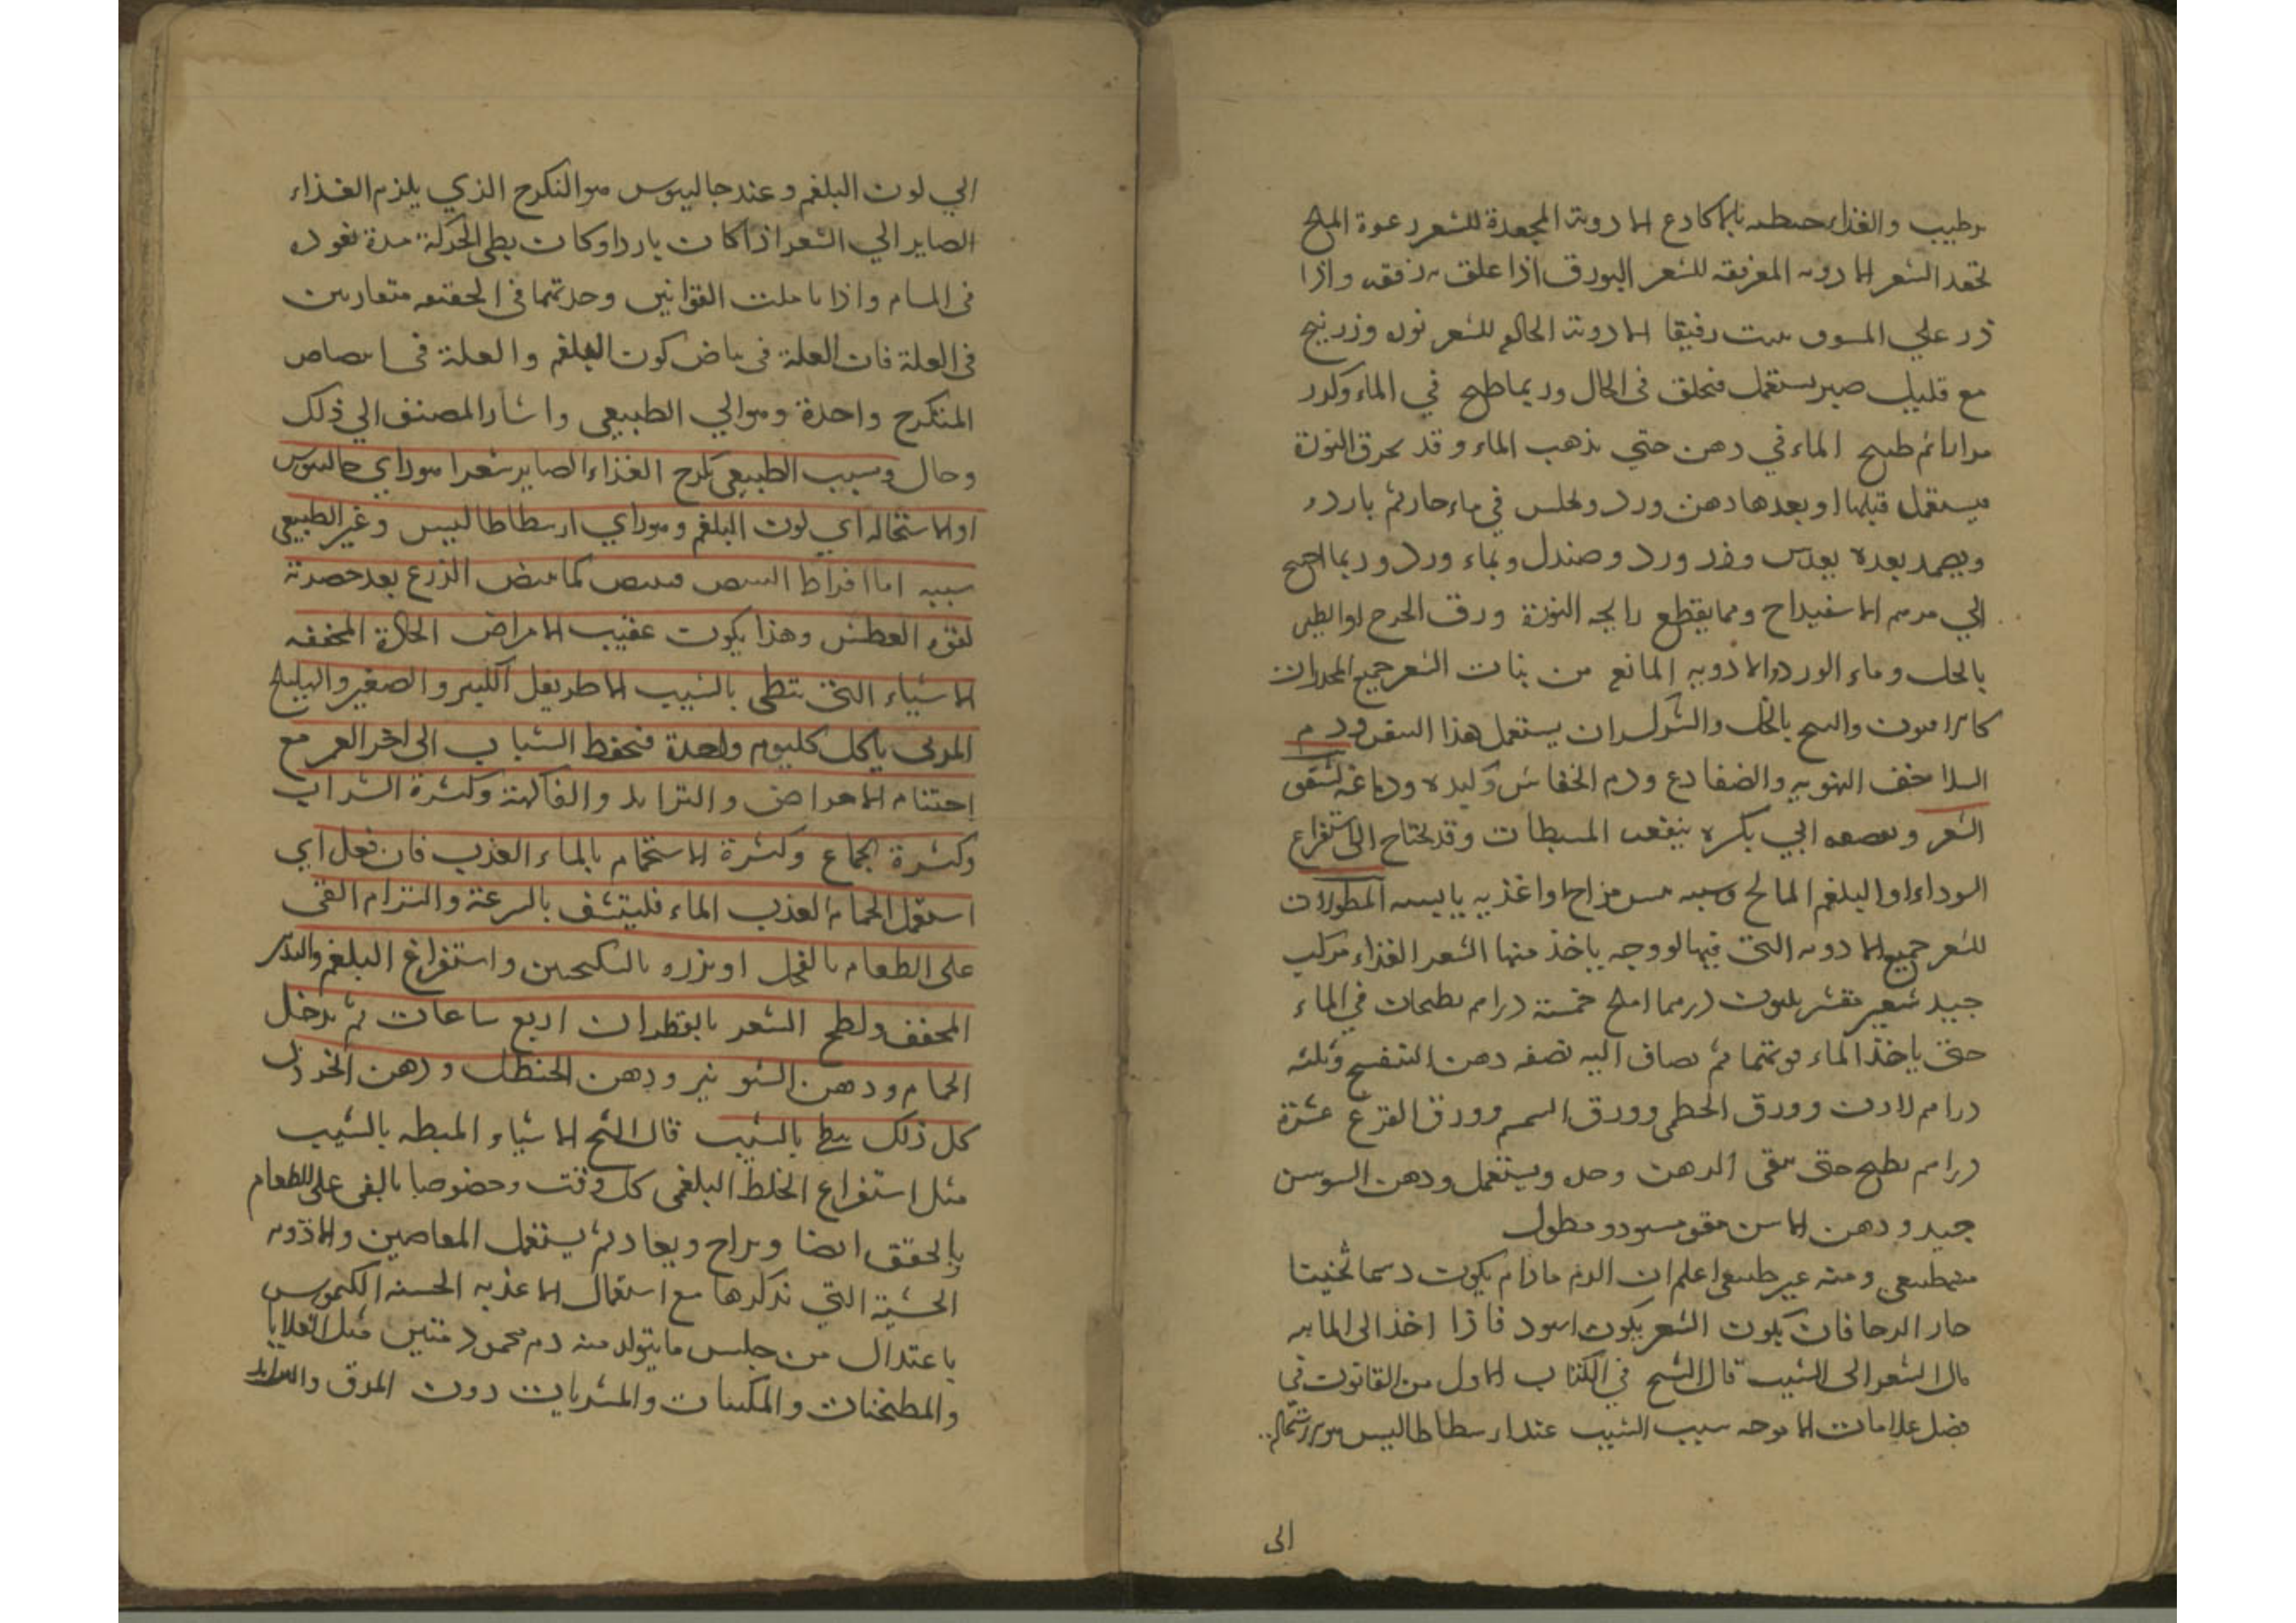 رطيب والغذاء حنطه بالاكادع الادوية المجعدة للشعر رعوة الملح
تجعد الشعر الادويه المغزيقه للشعر البورق اذا علق رفقه واذا
ذر علي المسوف رفيقا الادوية الحالقه للشعر نوره وزرنيخ
مع قليل صبر يستعمل فتحلق في الحال وربما طبخ في الماء وكرر
مرارا ثم طبخ الماء في دهن حتي يذهب الماء وقد تحرق النورة
فيستعمل قبلها او بعدها دهن ورد ويجلس في ماء حار ثم بارد
ويضمد بعده بعدس وورد وصندل وبماء ورد وربما احتيج
الي مرهم الاسفيداج ومما يقطع رايحه النورة ورق الخوخ او الطين
بالخل وماء الورد والادويه المانعه من نبات الشعر جميع المخدرات
كالافيون والبنج بالخل والشوكران يستعمل هذا السقي ودم
السلاحف النهريه والضفادع ودم الخفاش وكبده ودماغه تشقق
الشعر وتقصفه ينفعه المبسطات وقد يحتاج الي استفراغ
السوداء او البلغم المالح وسببه يبس مزاج او اغذيه يابسه المطولات
للشعر جميع الادويه التي فيها لزوجه ياخذ منها الشعر الغذاء مركب
جيد شعير مقشر ثلثون درهما املج خمسة دراهم يطبخان في الماء
حتي ياخذ الماء قوتهما ثم يضاف اليه نصفه دهن البنفسج وثلثه
دراهم لادن وورق الخطمي وورق السمسم وورق القرع عشرة
دراهم يطبخ حتي يبقي الدهن وحده ويستعمل ودهن السوسن
جيد ودهن الاس مقو مسود ومطول
منه طبيعي ومنه غير طبيعي اعلم ان الدم مادام يكون دسما ثخينا
حار الدجا فان يكون الشعر يكون اسود فاذا اخذ الي المائيه
مال الشعر الي الشيب قال الشيخ في الكتاب الاول من القانون في
فصل علامات الامزجه سبب الشيب عند ارسطاطاليس هو الاستحاله
الي
الي لون البلغم وعند جالينوس هو التكرج الذي يلزم الغذاء
الصاير الي الشعر اذا كان باردا وكان بطي الحركة مدة نفوذه
في المسام واذا تاملت القوانين وجدتهما في الحقيقه متقاربين
في العلة فان العلة في بياض كون البلغم والعلة في ابيضاض
المتكرج واحدة وهو الي الطبيعي واشار المصنف الي ذلك
وحال وسبب الطبيعي تكرج الغذاء الصاير شعرا هو راي جالينوس
او الاستحاله اي لون البلغم وهو راي ارسطاطاليس وغير الطبيعي
سببه اما افراط اليبس فيبيض كما يبيض الزرع بعد خضرته
لقوه العطش وهذا يكون عقيب الامراض الحارة المجففه
الاشياء التي تبطي بالشيب الاطريفل الكبير والصغير والهليلج
المربي ياكل كل يوم واحدة فتحفظ الشباب الي اخر العمر مع
اجتناب الامراض والترايد والفاكهة وكثرة الشراب
وكثرة الجماع وكثرة الاستحمام بالماء العذب فان فعل اي
استعمل الحمام العذب الماء فليتنشف بالسرعة والتزام القي
علي الطعام بالفجل او بزره بالسكنجبين واستفراغ البلغم والتدبير
المجفف ولطخ الشعر بالقطران اربع ساعات ثم يدخل
الحمام ودهن الشونيز ودهن الحنظل ودهن الخردل
كل ذلك يبطي بالشيب قال الشيخ الاشياء المبطه بالشيب
مثل استفراغ الخلط البلغمي كل وقت وخصوصا بالقي علي الطعام
بالحقق ايضا ويراح ويعاد ثم يستعمل المعاجين والادويه
الحشية التي نذكرها مع استعمال الاغذيه الحسنه الكيموس
باعتدال من جلس ما يتولد منه دم محمود متين مثل القلايا
والمطجنات والمكببات والمشويات دون المرق والترايد